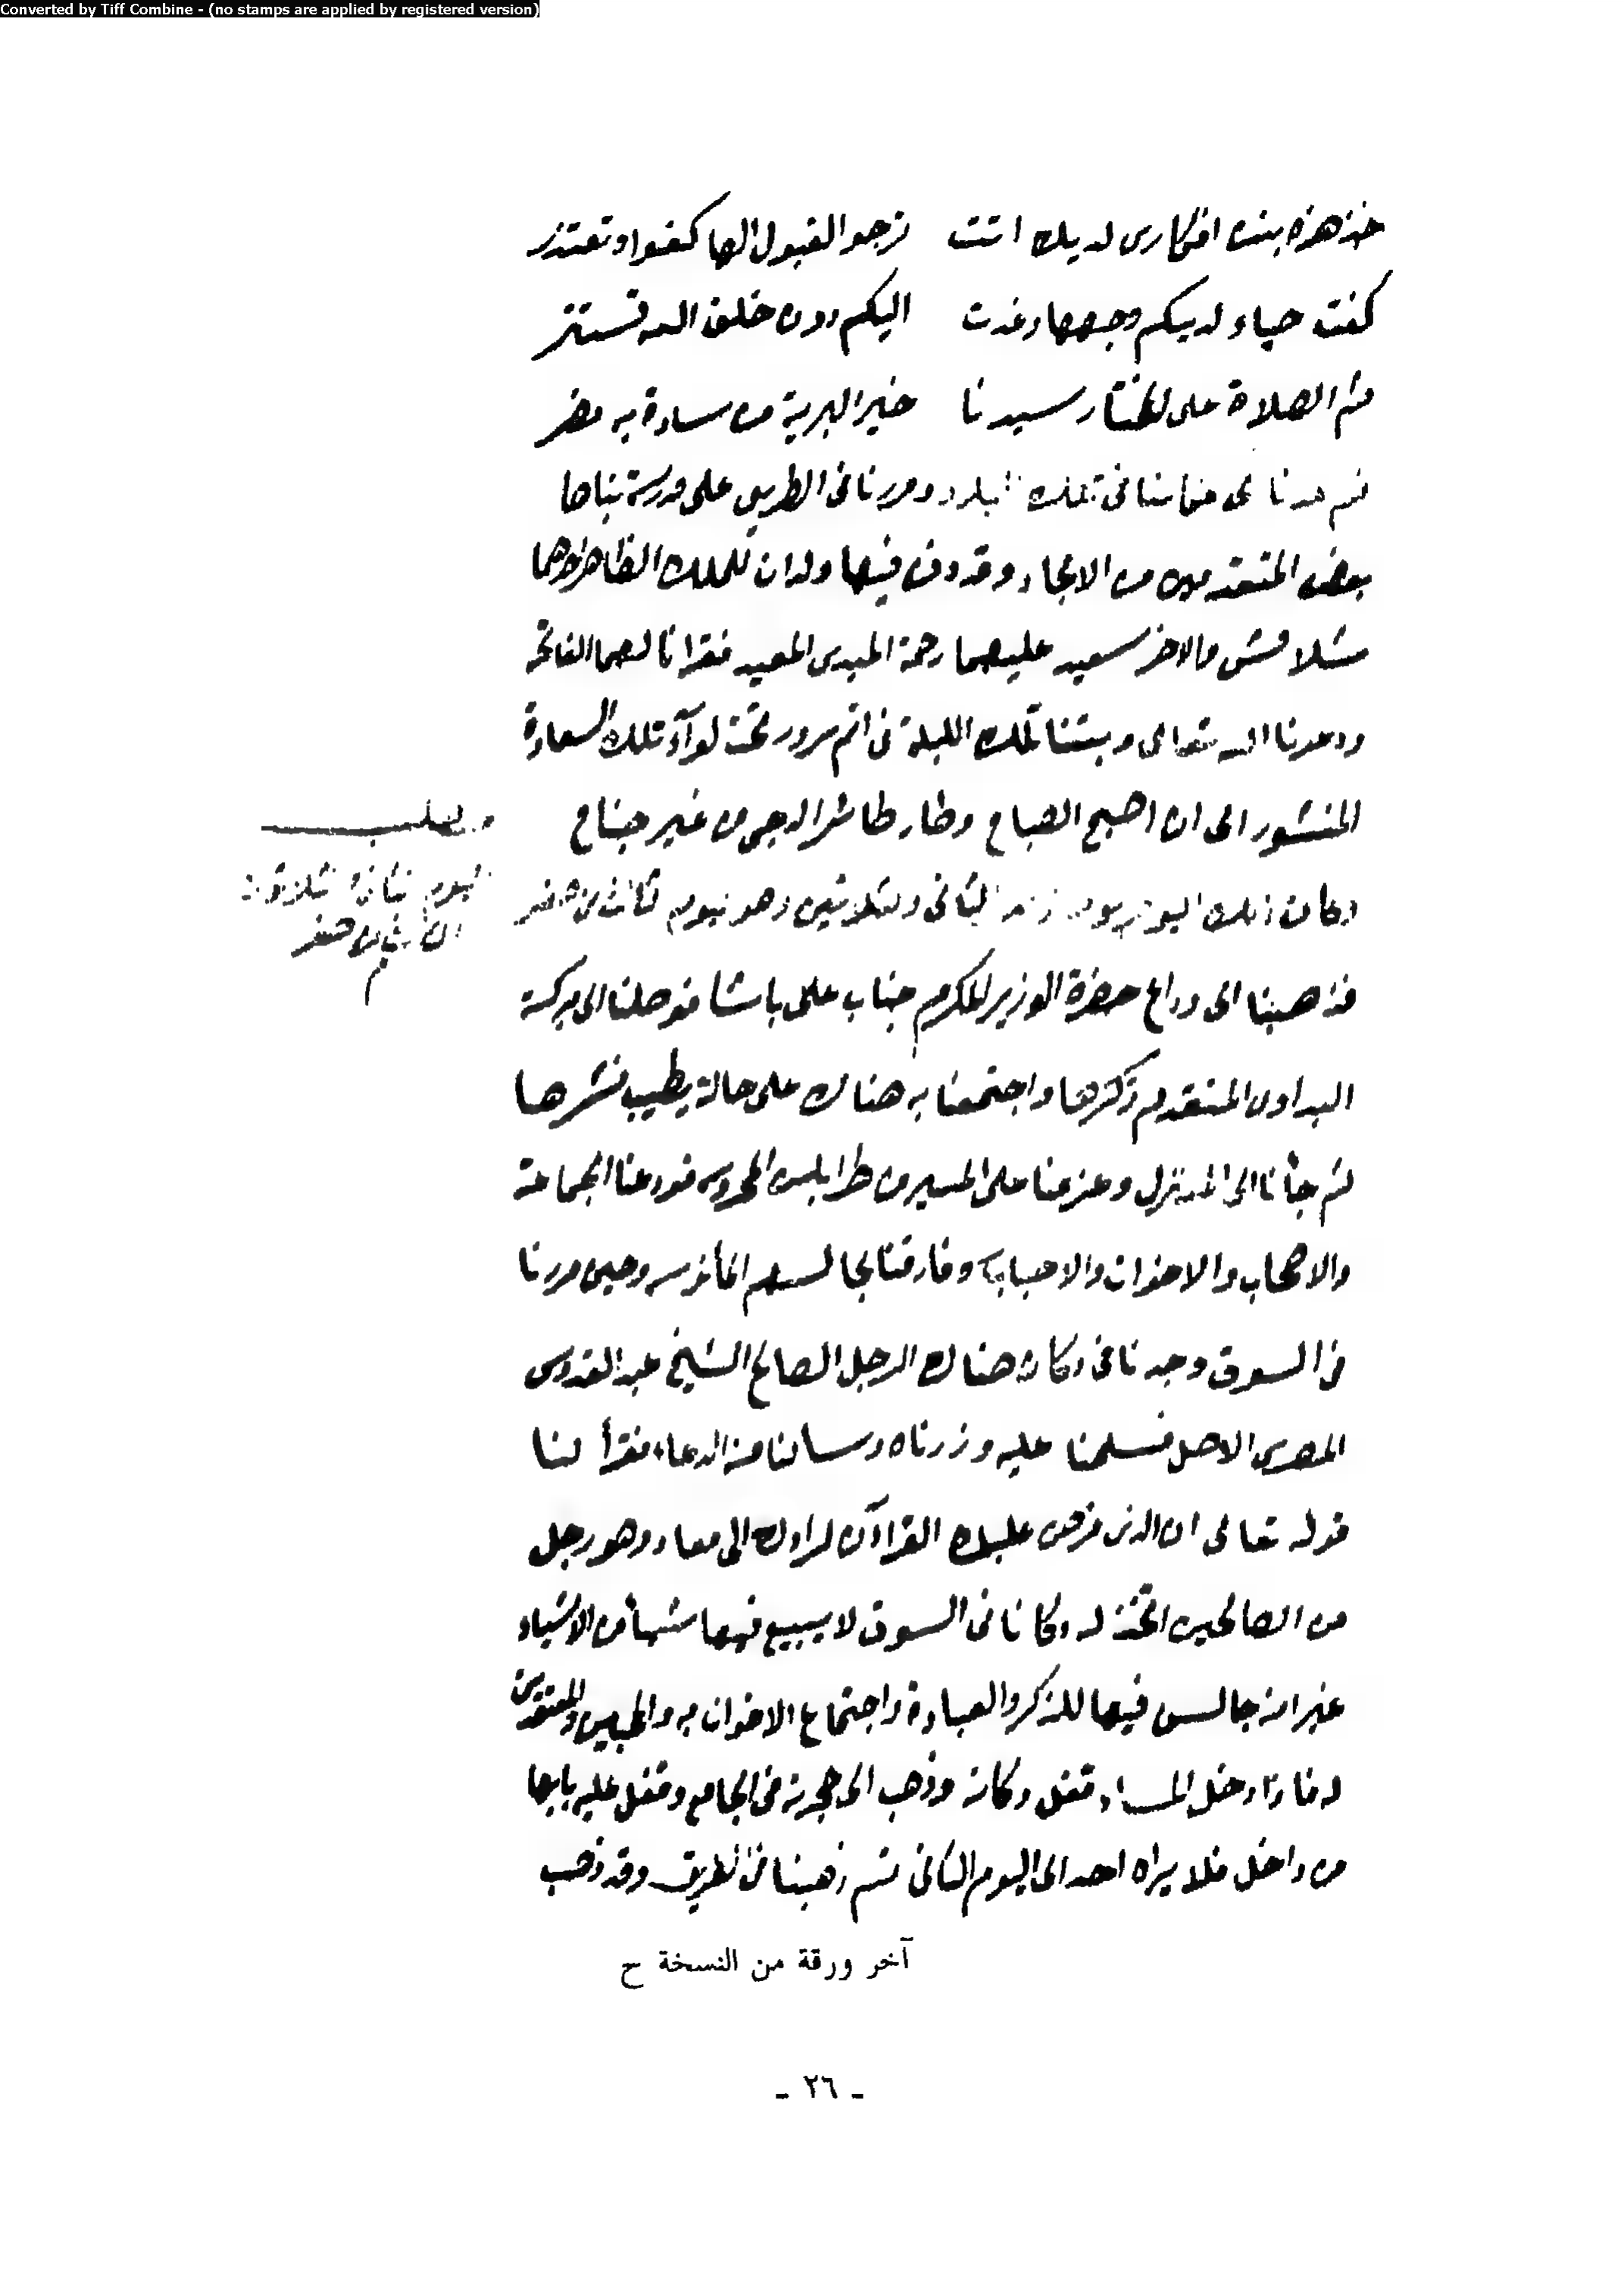 Converted by Tiff Combine - (no stamps are applied by registered version)
خذ هذه بنت افكارى لديك اتت ترجو القبول الها كفوا وتعتذر
كفت حياء لديكم وجهها وغدت اليكم دون خلق الله تستتر
ثم الصلاة على المختار سيدنا خير البرية من سادة به مضر
ثم عدنا الى مكاننا فى تلك البلاد ومررنا فى الطريق على مدرسة بناها
بعض المتقدمين من الامجاد وقد دفن فيها ولدان للملك الظاهر
والاخر سعيد عليهما رحمة المبدى المعيد فقرانا لهما الفاتحة
ودعونا الله تعالى وبتنا تلك الليلة فى اتم سرور تحت لوآء تلك السعادة
المنشور الى ان اصبح الصباح وطار طائر الدجى من غير جناح
وكان ذلك اليوم يوم الثانى والثلاثين وهو يوم ثالث من صفر
مطلب
اليوم الثانى ثلاثون
من صفر
فذهبنا الى وداع حضرة الوزير المكرم جناب على باشا فوصلنا الى بركة
البداوى المتقدم ذكرها واجتمعنا به هناك على حالة يطيب نشرها
ثم جأنا الى المنزل وعزمنا على المسير من طرابلس المحروسه فودعنا الجماعة
والاصحاب والاخوان والاحباب وفارقنا مجالسهم المأنوسه وحين مررنا
فى السوق وجدنا فى دكان هناك الرجل الصالح الشيخ عبد القدوس
المصرى الاصل فسلمنا عليه وزرناه وسالنا منه الدعاء فقرأ لنا
قوله تعالى ان الذى فرض عليك القرآن لرادك الى معاد وهو رجل
من الصالحين اتخذ له دكانا فى السوق لا يبيع فيها شيأ من الاشياء
غير انه جالس فيها للذكر والعبادة واجتماع الاخوان به والمحبين والمعتقدين
له فاذا دخل المساء قفل دكانه وذهب الى حجرته فى الجامع وقفل عليه بابها
من داخل فلا يراه احد الى اليوم الثانى ثم ذهبنا فى الطريق وقد ذهب
آخر ورقة من النسخة ح
- ٢٦ -